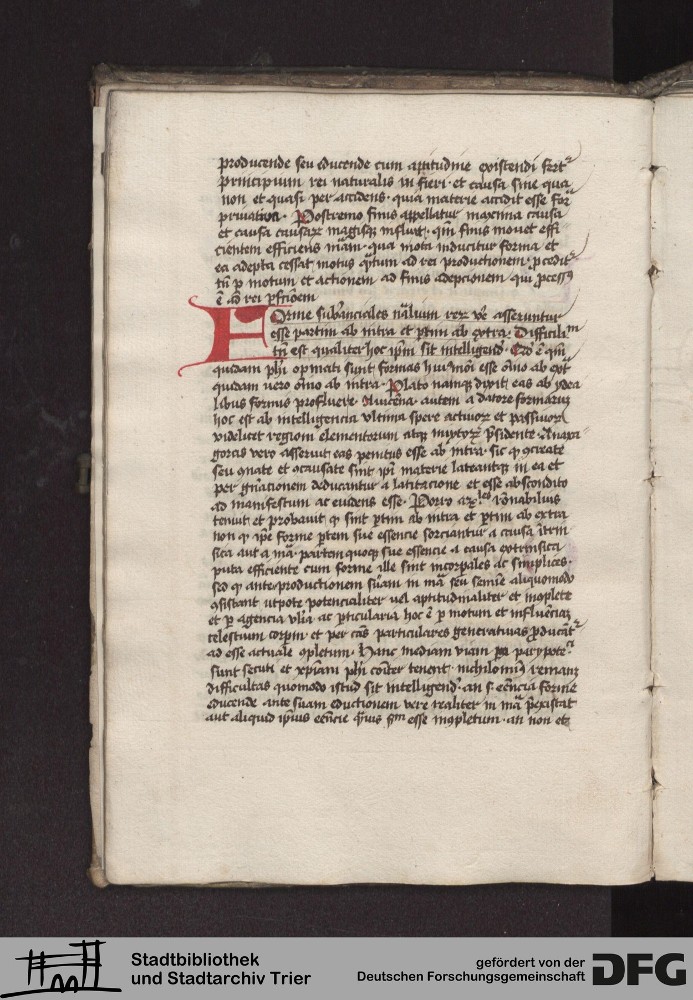 producende seu educende cum aptitudine existendi fert᷑
principium rei naturalis in fieri · et causa sine qua
non et quasi per accidens · quia materie accidit esse for
privatio · Postremo finis appellatur maxima causa
et causa causarum magisque influit · qm̄ finis movet effi
cientem efficiens mām · qua mota inducitur forma et
ea adepta cessat motus q̄tum ad rei productionem · procedit᷑
tn̄ p motum et actionem ad finis adepcionem qui process9
ē ad rei pfc̄ioem
Forme substanciales nālium rerum vere asseruntur
esse partim ab intra et ptim ab extra · Difficilim
tn̄ est qualiter hoc ipm̄ sit intelligend' · Eo ē qm̄
quidam phi opinati sunt formas huiusmōi esse om̄io ab ext
quidam vero om̄io ab intra · Plato namque dixit eas ab ydea
libus formis profluere · Avicēna autem a datore formarum
hoc est ab intelligencia ultima spere activorum et passivorum
videlicet regioni elementorum atque mixtorum presidente · Anaxa
goras vero asseruit eas penitus esse ab intra · sic q ꝯcreate
seu ꝯnate et ꝯcausate sint ipi materie lateantque in ea et
per gn̄acionem deducantur a latitacione et esse abscondito
ad manifestum ac evidens esse · Porro arles rōnabilius
tenuit et probavit q sint ptim ab intra et ptim ab extra
non q ipe forme ptem sue essencie sorciantur a causa ītrin
sica aut a mā · partem quoque sue essencie a causa extrinsica
puta efficiente cum forme ille sint incorpales ac simplices ·
sed q ante productionem suam in mā seu semine aliquomodo
ꝯsistant utpote potencialiter vel aptitudinaliter et inꝯplete
et p agencia vlia ac pticularia hoc ē p motum et influēciam
celestium corpm̄ · et per cās particulares generativas producāt᷑
ad esse actuale ꝯpletum · Hanc mediam viam pm̄ parypote
sunt secuti et xpiani phi cōiter tenent · nichilomin9 remanet
difficultas quomodo istud sit intelligend' · an s. eēncia forme
educende ante suam eductionem vere realiter in mā preexistat
aut aliquid ipius eēncie q̄vis sm esse inꝯpletum · an non et
Stadtbibliothek
und Stadtarchiv Trier
gefördert von der
Deutschen Forschungsgemeinschaft
DFG